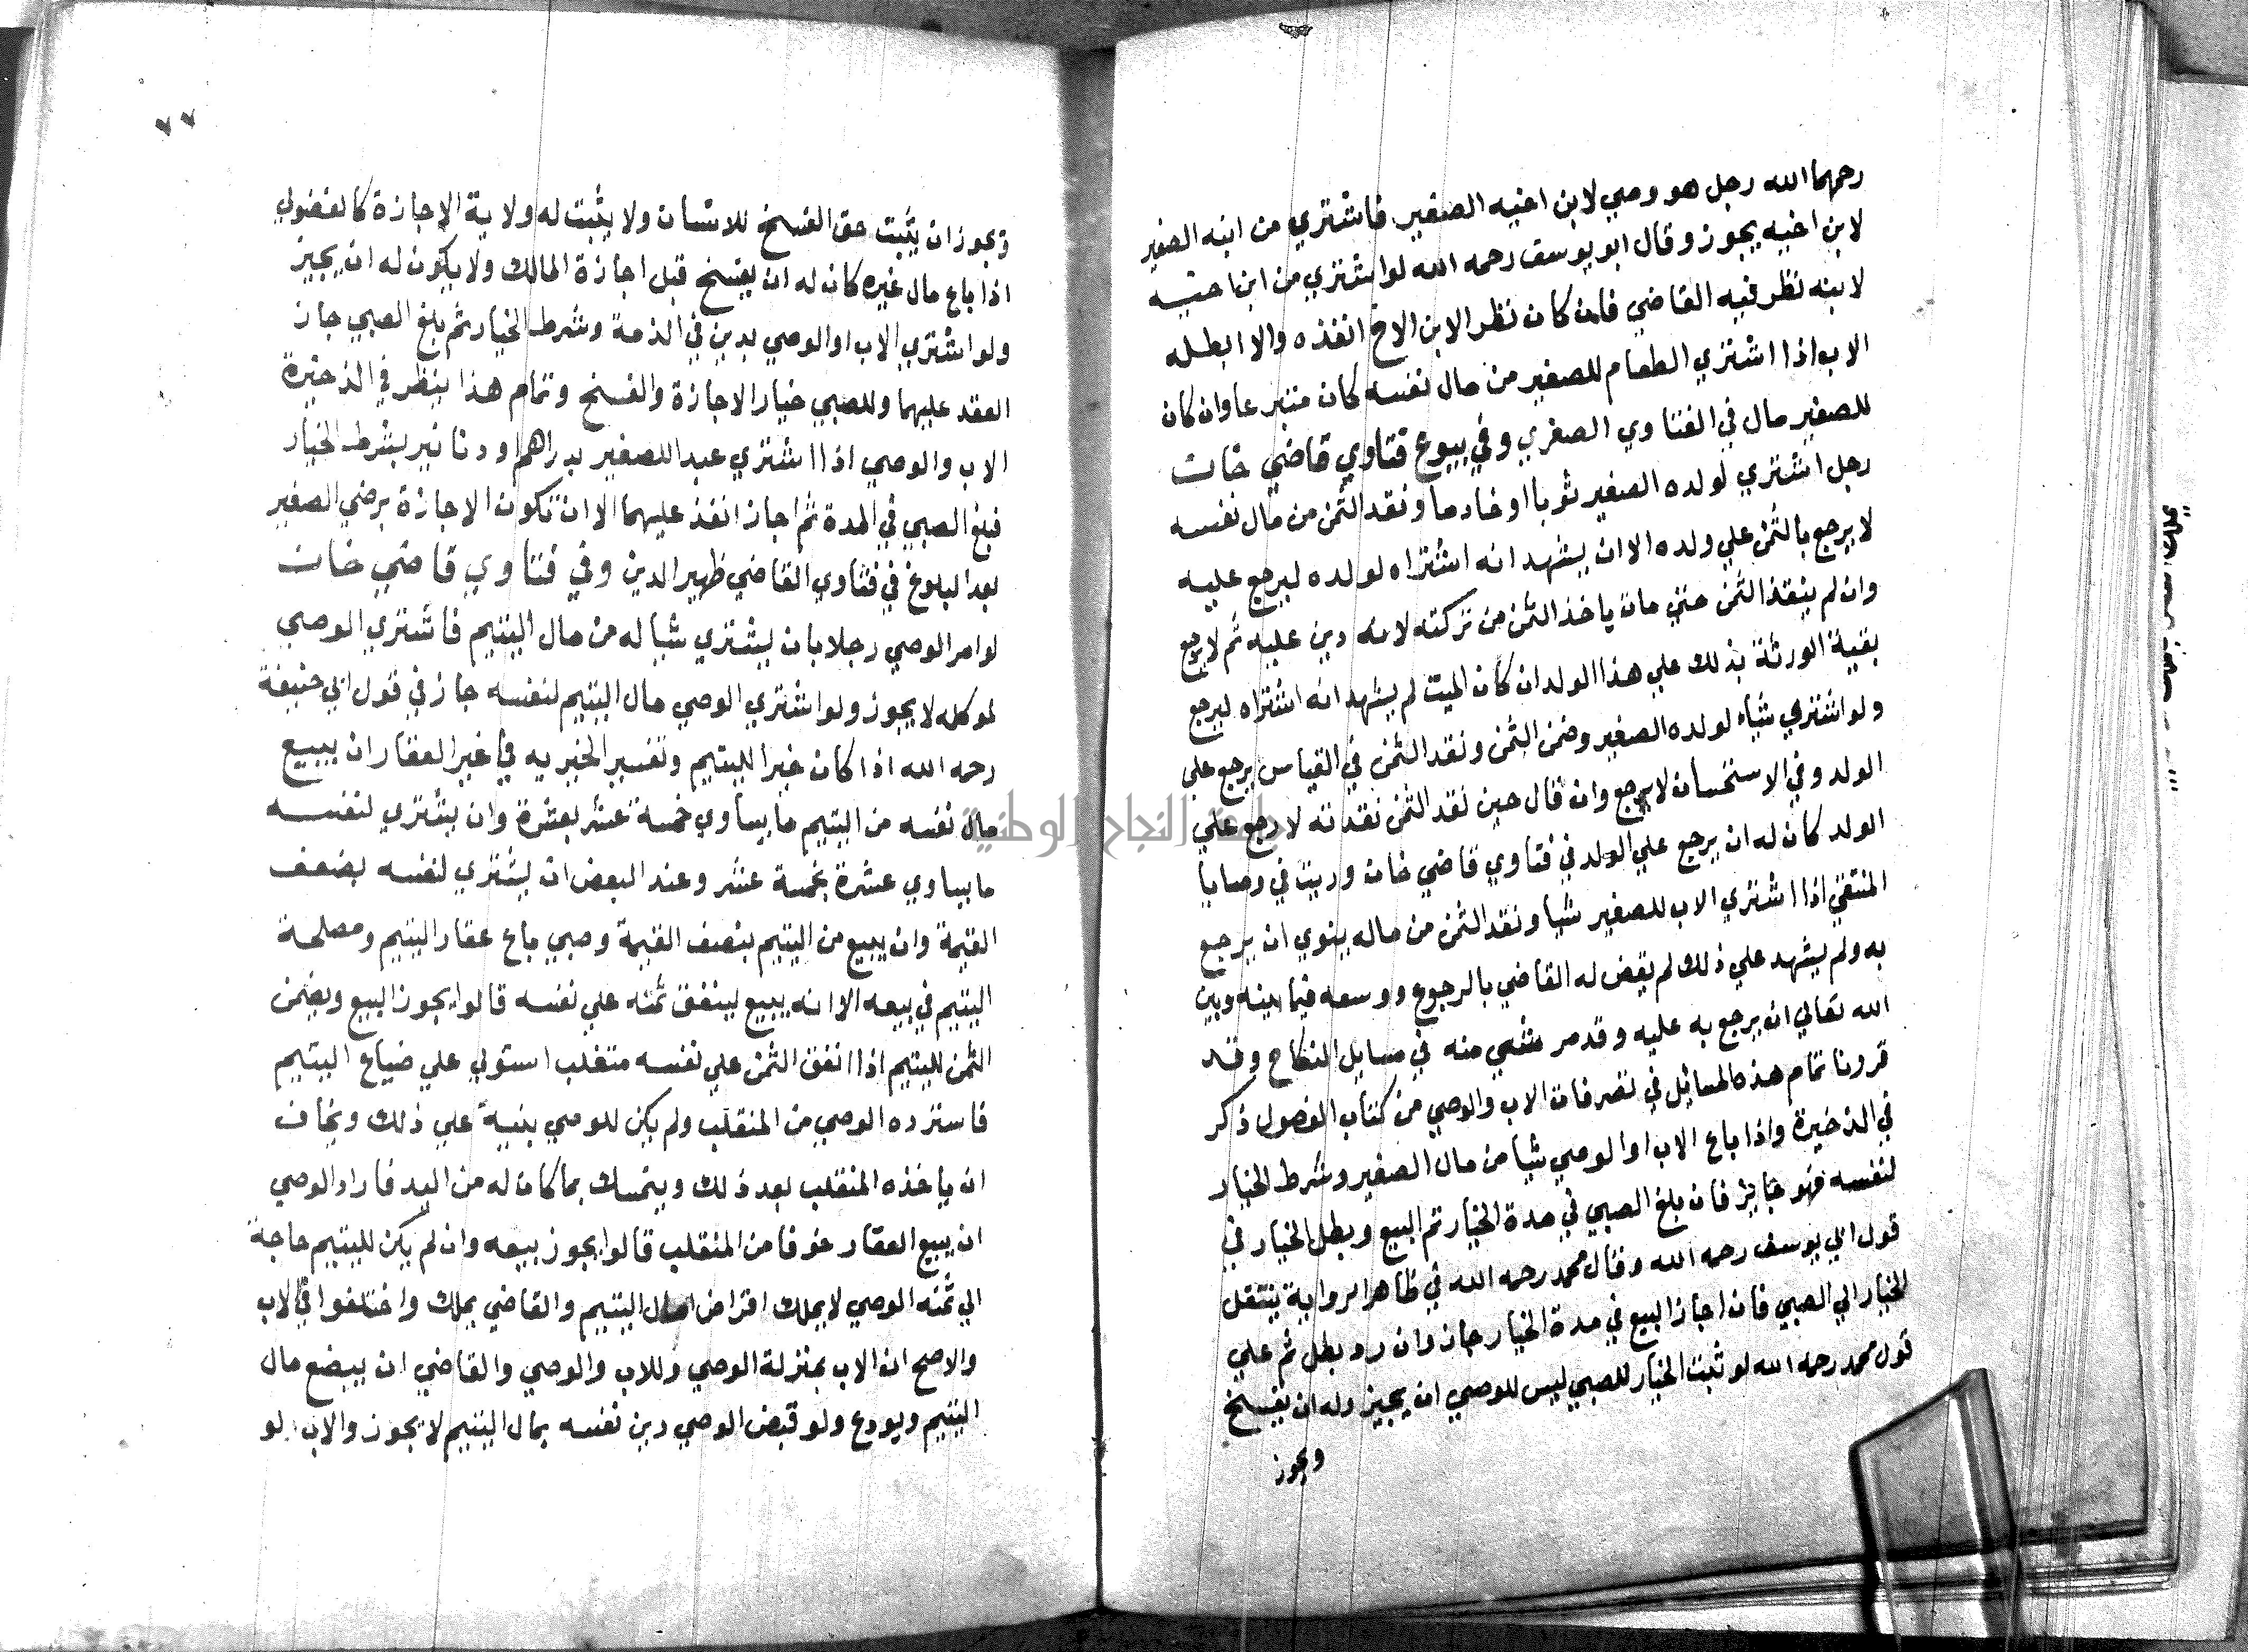 رحمهما الله رجل هو وصي لابن اخيه الصغير فاشتري من ابنه الصغير
لابن اخيه يجوز وقال ابو يوسف رحمه الله لو اشتري من ابن اخيه
لابنه نظر فيه القاضي فان كان نظر الابن الاخ انفذه والا ابطله
الاب اذا اشتري الطعام للصغير من مال نفسه كان متبرعا وان كان
للصغير مال في الفتاوي الصغري وفي بيوع فتاوي قاضي خان
رجل اشتري لولده الصغير ثوبا او خادما ونقد الثمن من مال نفسه
لا يرجع بالثمن علي ولده الا ان يشهد انه اشتراه لولده ليرجع عليه
وان لم ينقذ الثمن حتي مات ياخذ الثمن من تركته لانه دين عليه ثم لا يرجع
بقية الورثة بذلك علي هذا الولد ان كان الميت لم يشهد انه اشتراه ليرجع
ولو اشتري شياء لولده الصغير وضمن الثمن ونقد الثمن في القياس يرجع علي
الولد وفي الاستحسان لا يرجع وان قال حين نقد الثمن نقدته لا رجع علي
الولد كان له ان يرجع علي الولد في فتاوي قاضي خان وريت في وصايا
المنتقي اذا اشتري الاب للصغير شيا ونقد الثمن من ماله ينوي ان يرجع
به ولم يشهد علي ذلك لم يقض له القاضي بالرجوع ووسعه فيما بينه وبين
الله تعالي ان يرجع به عليه وقد مر شي منه في مسايل النكاح وقد
قرونا تمام هذه المسائل في تصرفات الاب والوصي من كتاب الفصول ذكر
في الذخيرة واذا باع الاب او الوصي شيا من مال الصغير وشرط الخيار
لنفسه فهو جايز فان بلغ الصبي في مدة الخيار تم البيع وبطل الخيار في
قول ابي يوسف رحمه الله وقال محمد رحمه الله في ظاهر الرواية ينتقل
الخيار الي الصبي فان اجاز البيع في مدة الخيار جاز وان رد بطل ثم علي
قول محمد رحمه الله لو ثبت الخيار للصبي ليس للوصي ان يجيز وله ان يفسخ
ويجوز
٧٧
ويجوز ان يثبت حق الفسخ للانسان ولا يثبت له ولاية الاجازة كالفضولي
اذا باع مال غيره كان له ان يفسخ قبل اجازة المالك ولا يكون له ان يجيز
ولو اشتري الاب او الوصي بدين في الذمة وشرط الخيار ثم بلغ الصبي جاز
العقد عليهما وللصبي خيار الاجازة والفسخ وتمام هذا ينظر في الذخيرة
الاب والوصي اذا اشتري عبدا للصغير بدراهم ودنانير بشرط الخيار
فبلغ الصبي في المدة ثم اجاز انفذ عليهما الا ان تكون الاجازة برضي الصغير
بعد البلوغ في فتاوي القاضي ظهير الدين وفي فتاوي قاضي خان
لو امر الوصي رجلا بان يشتري شيا له من مال اليتيم فاشتري الوصي
لموكله لا يجوز ولو اشتري الوصي مال اليتيم لنفسه جاز في قول ابي حنيفة
رحمه الله اذا كان خيرا لليتيم وتفسير الخيريه في غير العقار ان يبيع
مال نفسه من اليتيم ما يساوي خمسة عشر بعشرة وان يشتري لنفسه
ما يساوي عشرة بخمسة عشر وعند البعض ان يشتري لنفسه بضعف
القيمة وان يبيع من اليتيم بنصف القيمة وصبي باع عقار اليتيم ومصلحة
اليتيم في بيعه الا انه يبيع لينفق ثمنه علي نفسه قالوا يجوز البيع ويضمن
الثمن لليتيم اذا انفق الثمن علي نفسه متغلب استولي علي ضياع اليتيم
فاسترده الوصي من المتقلب ولم يكن للوصي بنية علي ذلك ويخاف
ان ياخذه المتقلب بعد ذلك ويتمسك بما كان له من اليد فاراد الوصي
ان يبيع العقار خوفا من المتقلب قالوا يجوز بيعه وان لم يكن لليتيم حاجة
الي ثمنه الوصي لا يملك اقتراض مال اليتيم والقاضي يملك واختلفوا في الاب
والاصح ان الاب بمنزلة الوصي وللاب والوصي والقاضي ان يبضع مال
اليتيم ويودع ولو قبض الوصي دين نفسه بمال اليتيم لا يجوز والاب لو
جامعة النجاح الوطنية